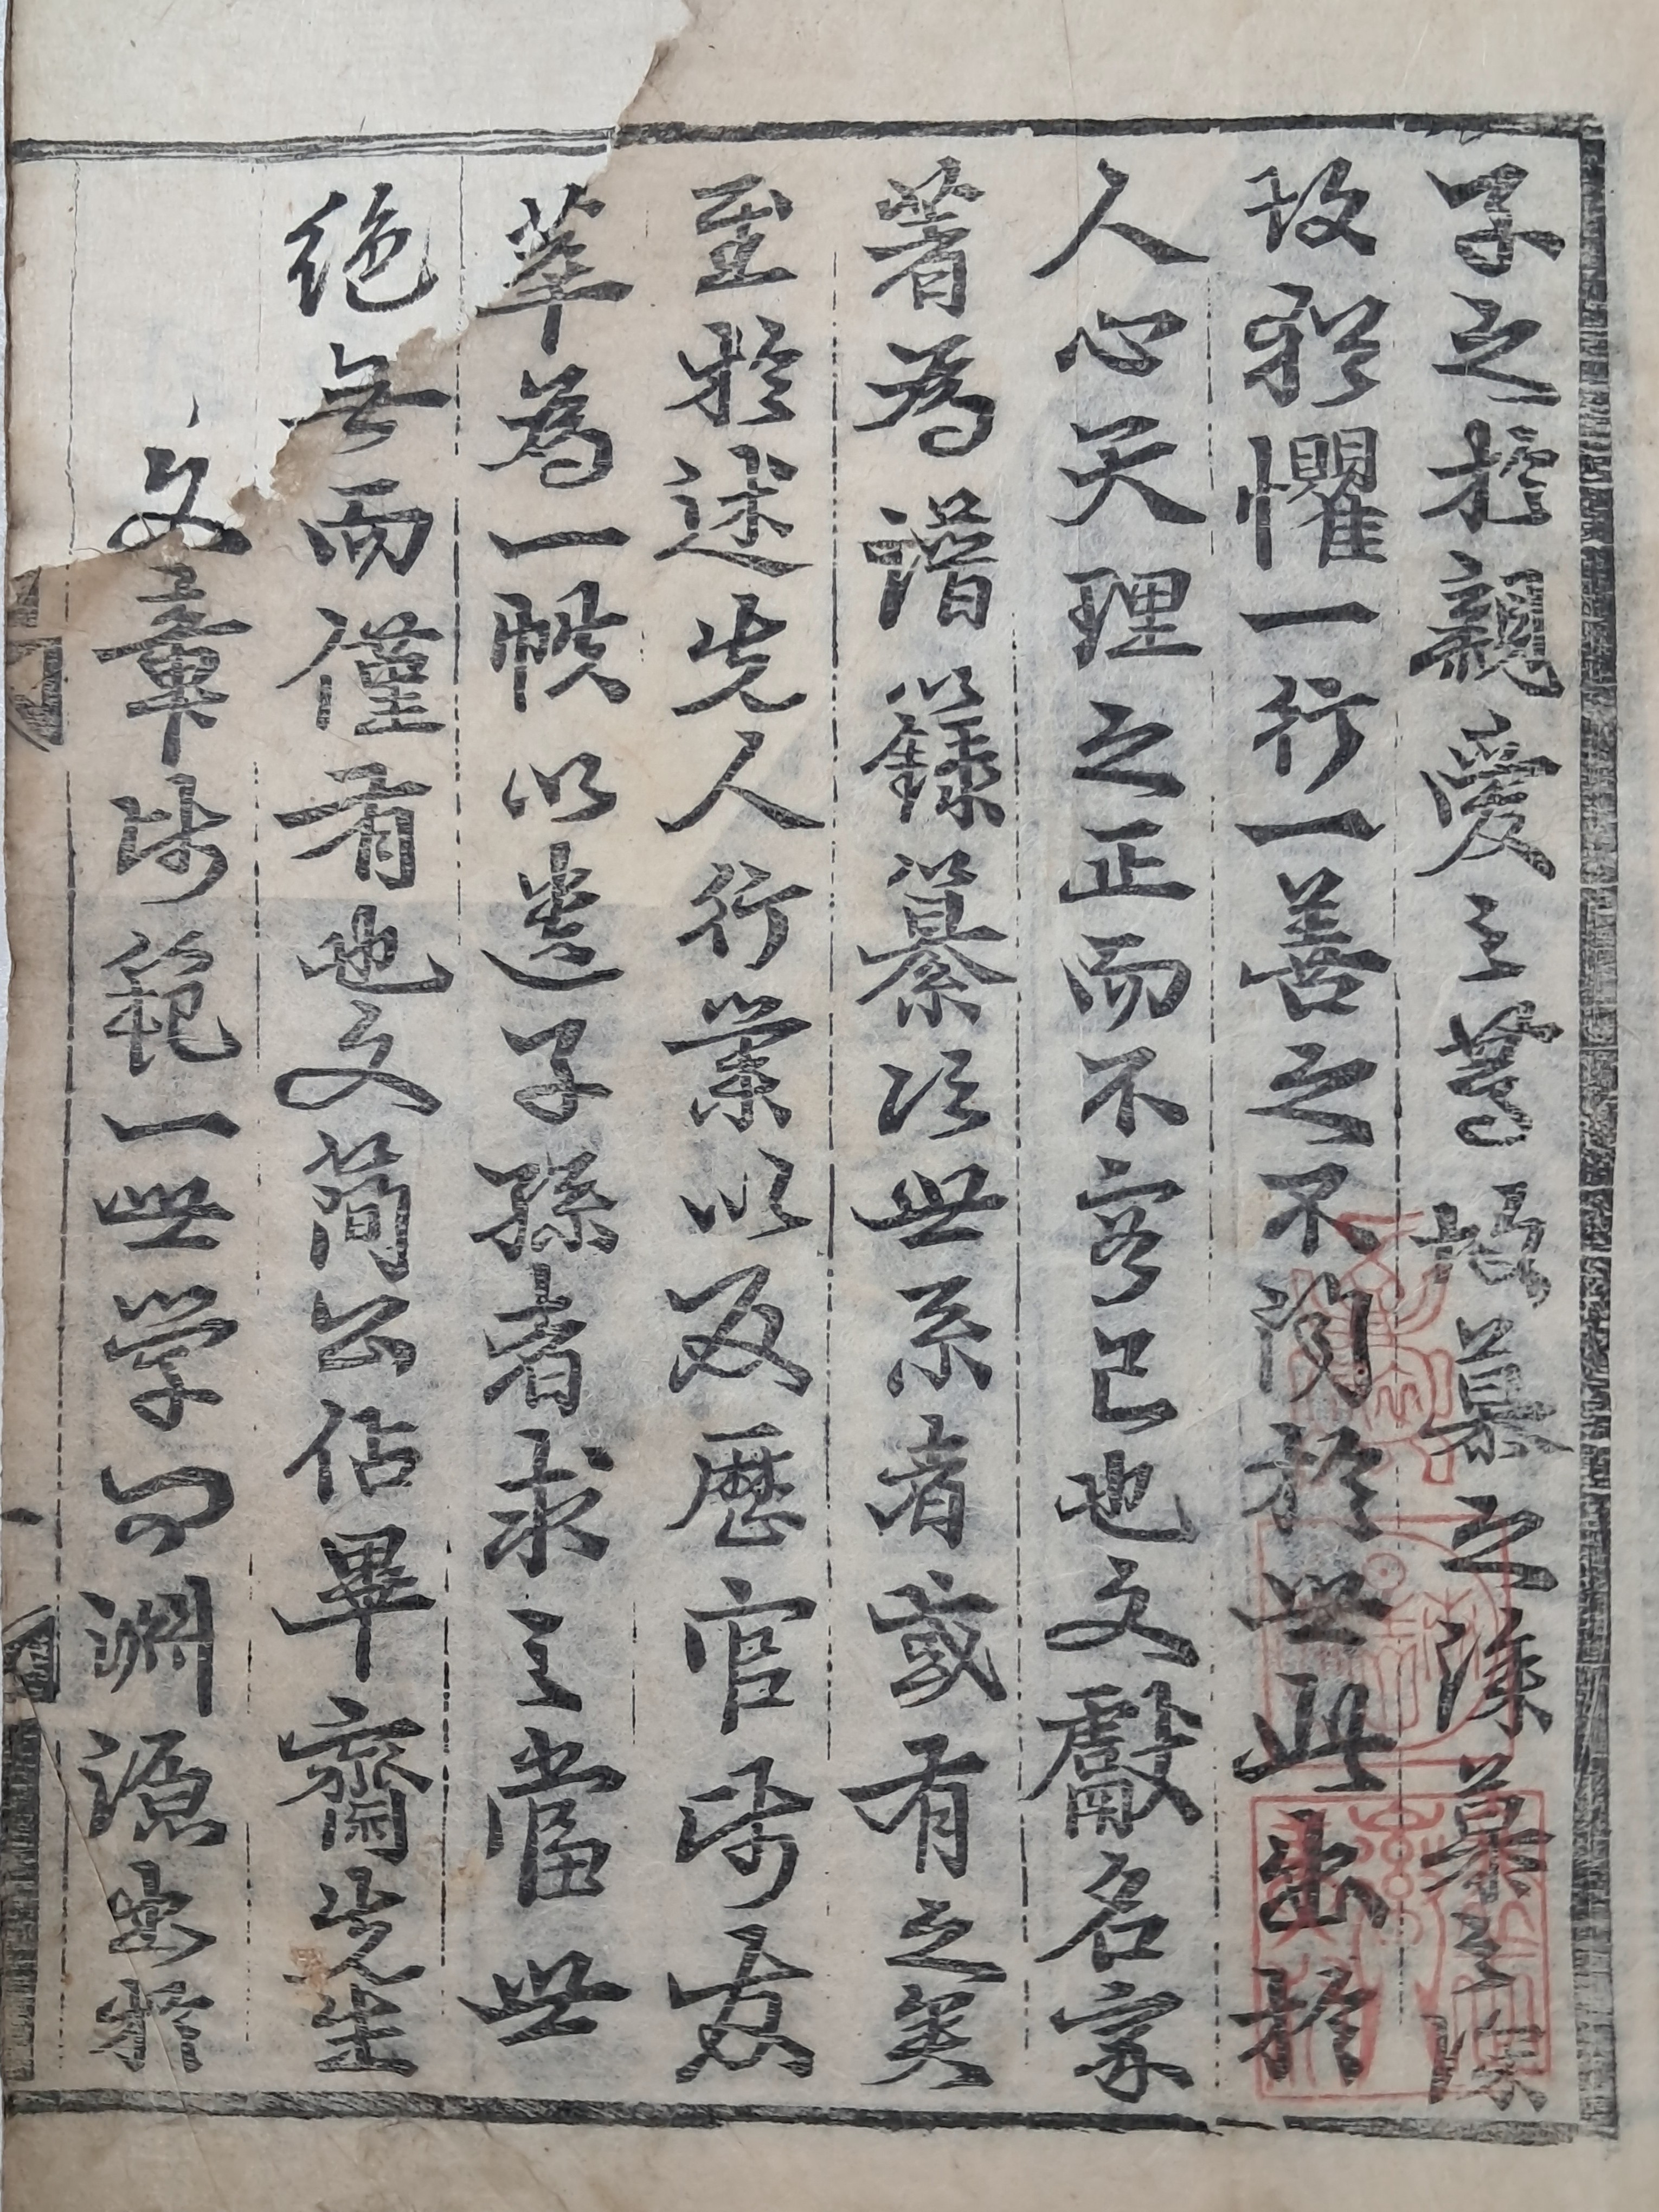 子之於親愛之甚故慕之深慕之深
故猶懼一行一善之不聞於世此出於
人心天理之正而不容已也文獻名家
著為譜籙纂次世系者或有之矣
至於述先人行業以及歷官師友
萃為一帙以遺子孫者求之當世
絶無而僅有也文簡公佔畢齋先生
文章師範一世學問淵源出於